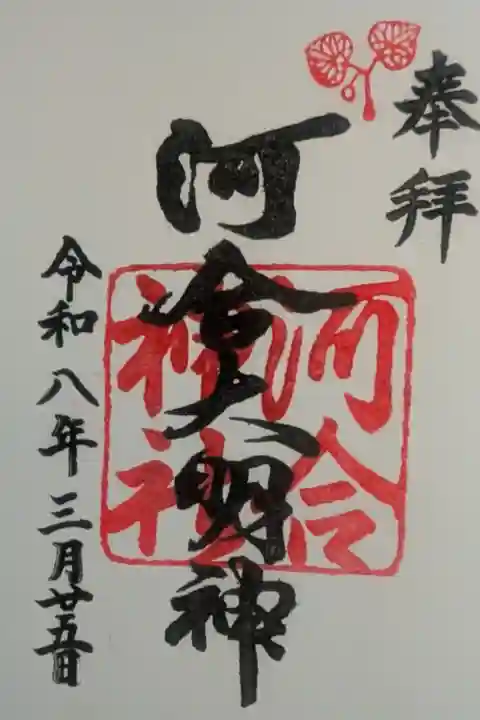 奉拝
河會大明神
河合
神社
令和八年三月廿五日